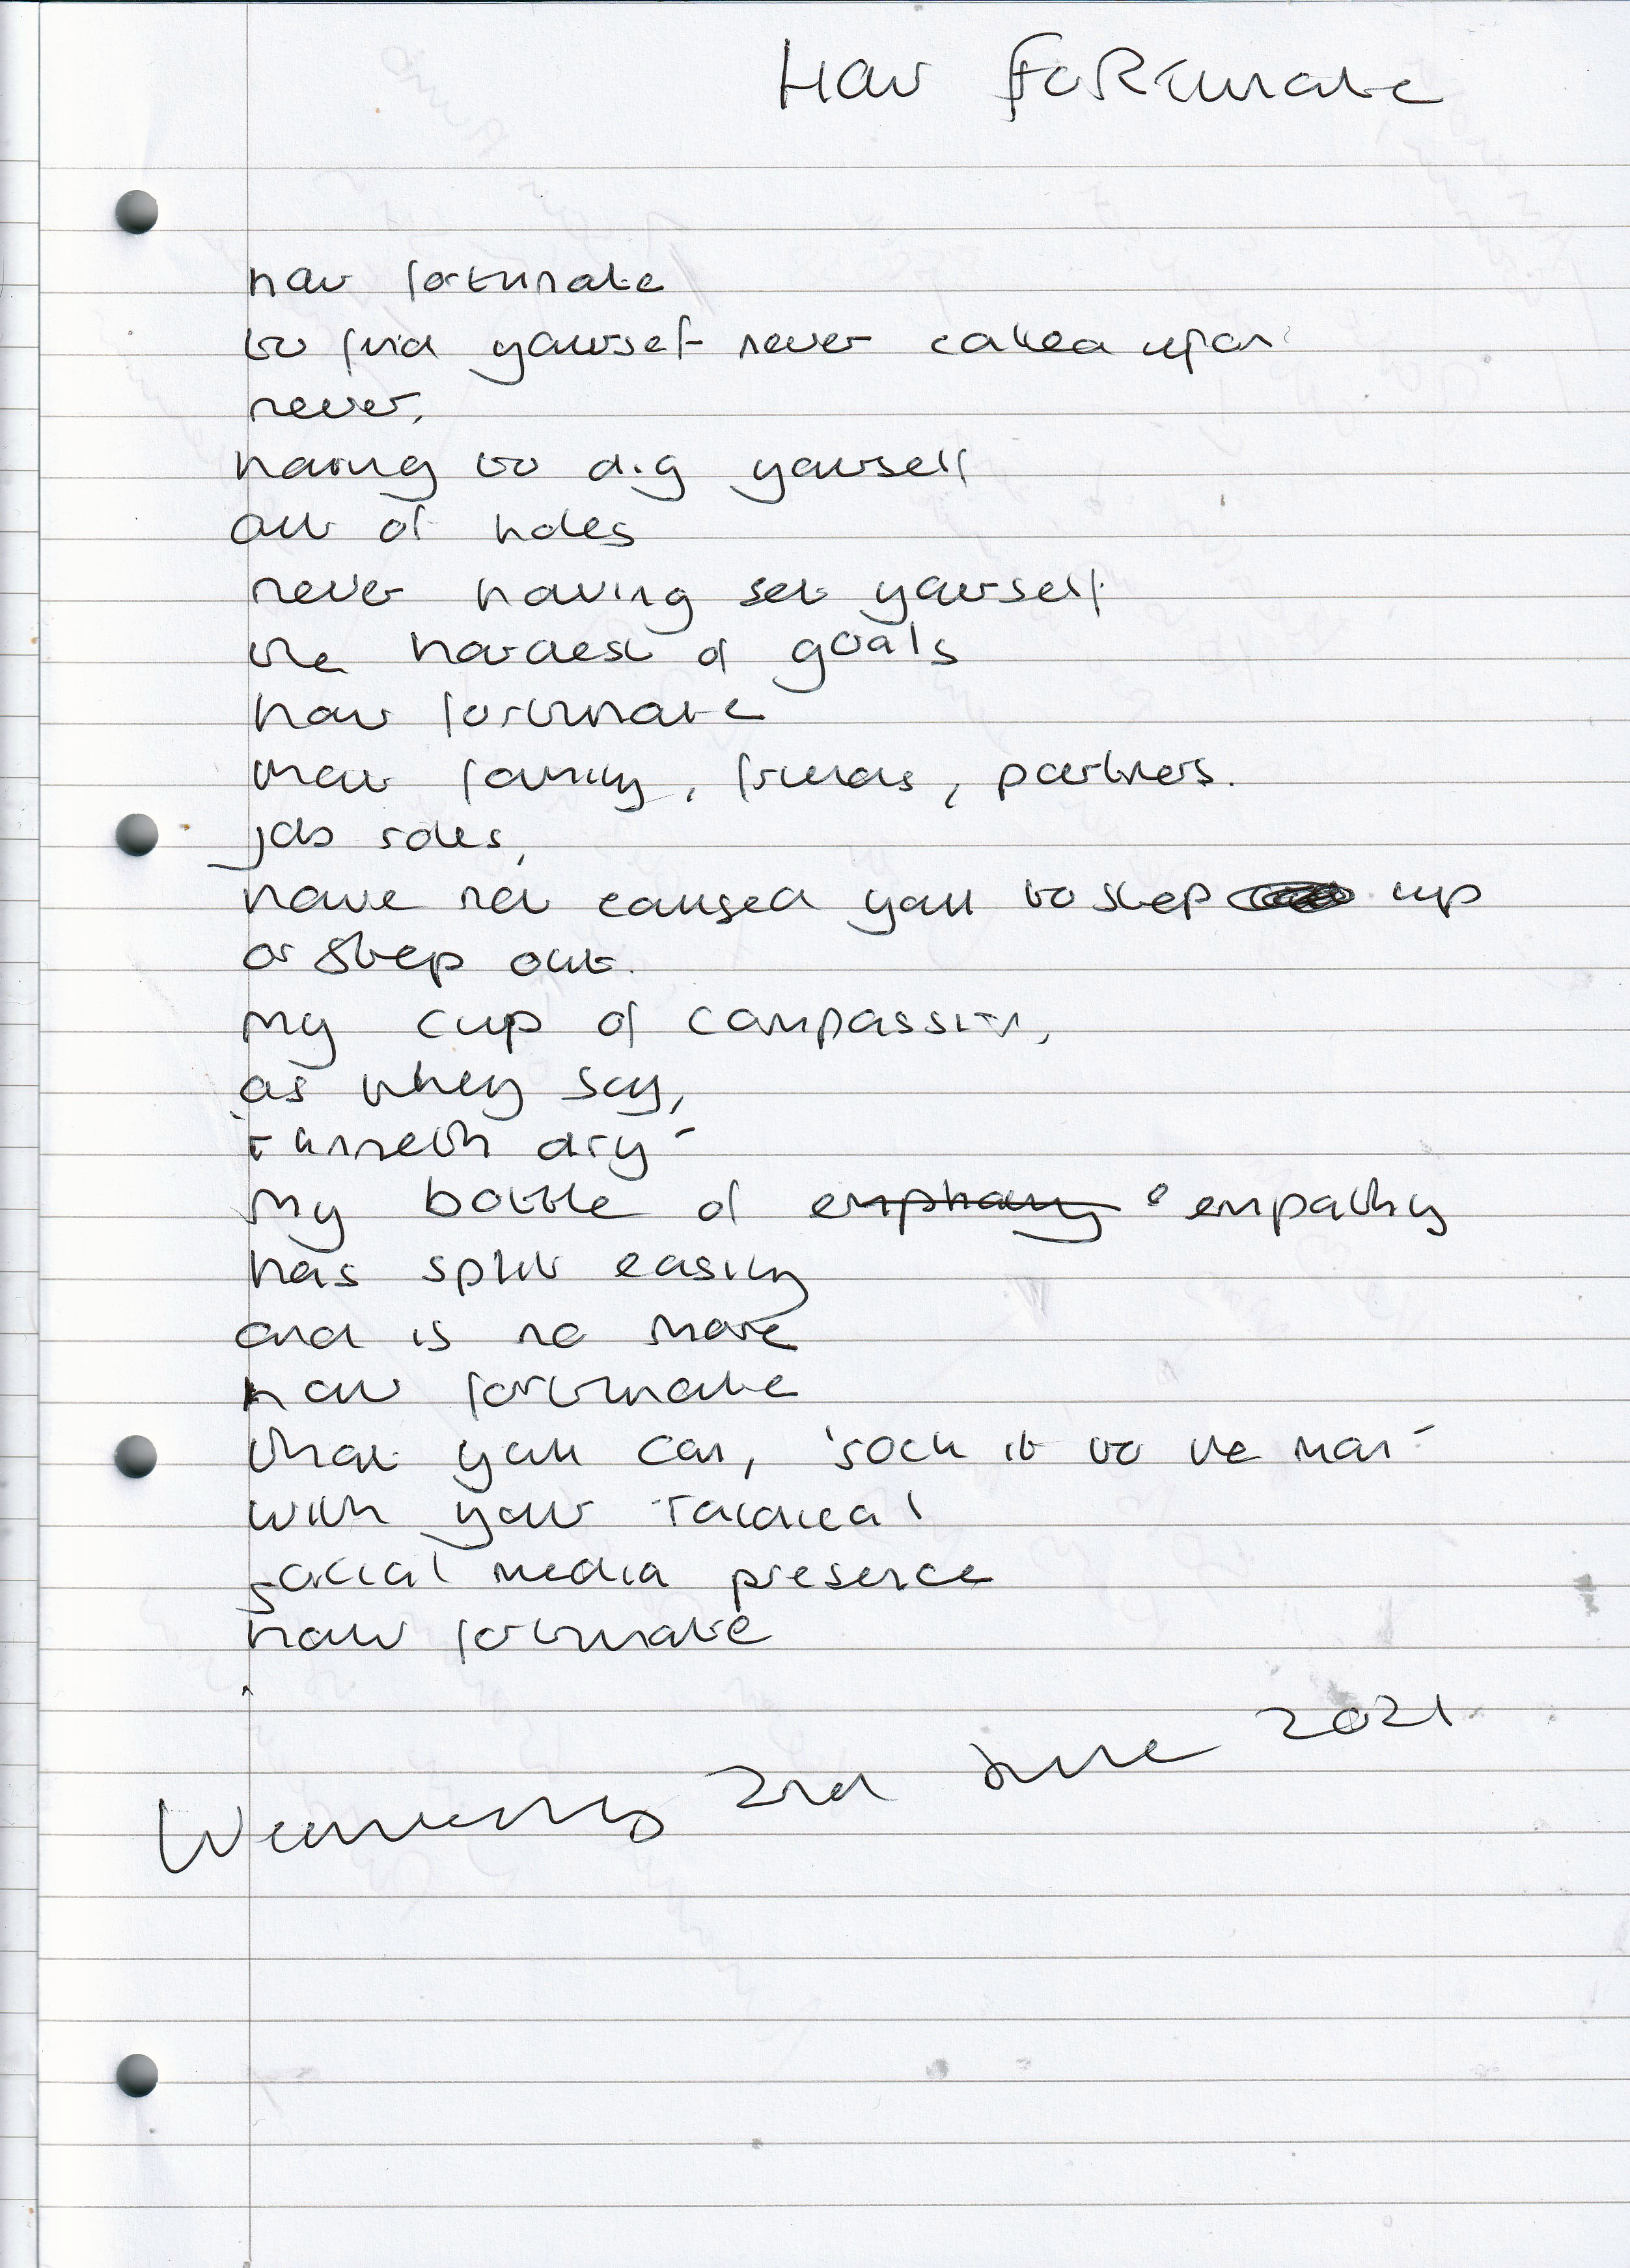 How Fortunate
how fortunate
to find yourself never called upon
never,
having to dig yourself
out of holes
never having set yourself
the hardest of goals
how fortunate
that family, friends, partners.
job roles,
have not caused you to step up
or step out.
my cup of compassion,
as they say,
'runneth dry'
my bottle of emphany empathy
has spilt easily
and is no more
how fortunate
that you can, 'sock it to the man'
with your radical
social media presence
how fortunate
Wednesday 2nd June 2021